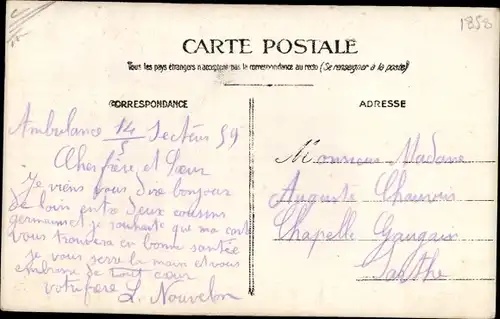 1858
CARTE POSTALE
Tous les pays étrangers n'acceptent pas la correspondance au recto (Se renseigner à la poste)
CORRESPONDANCE
ADRESSE
Ambulance 14/5 Secteur 59
Cher frère et Sœur
Je viens vous dire bonjour
de loin entre deux coussins
germains et je souhaite que ma carte
vous trouvera en bonne santée
je vous serre la main et vous
embrasse de tout cœur
votre frère L. Nouvelon
Monsieur Madame
Auguste Chauvois
Chapelle Gaugain
Sarthe